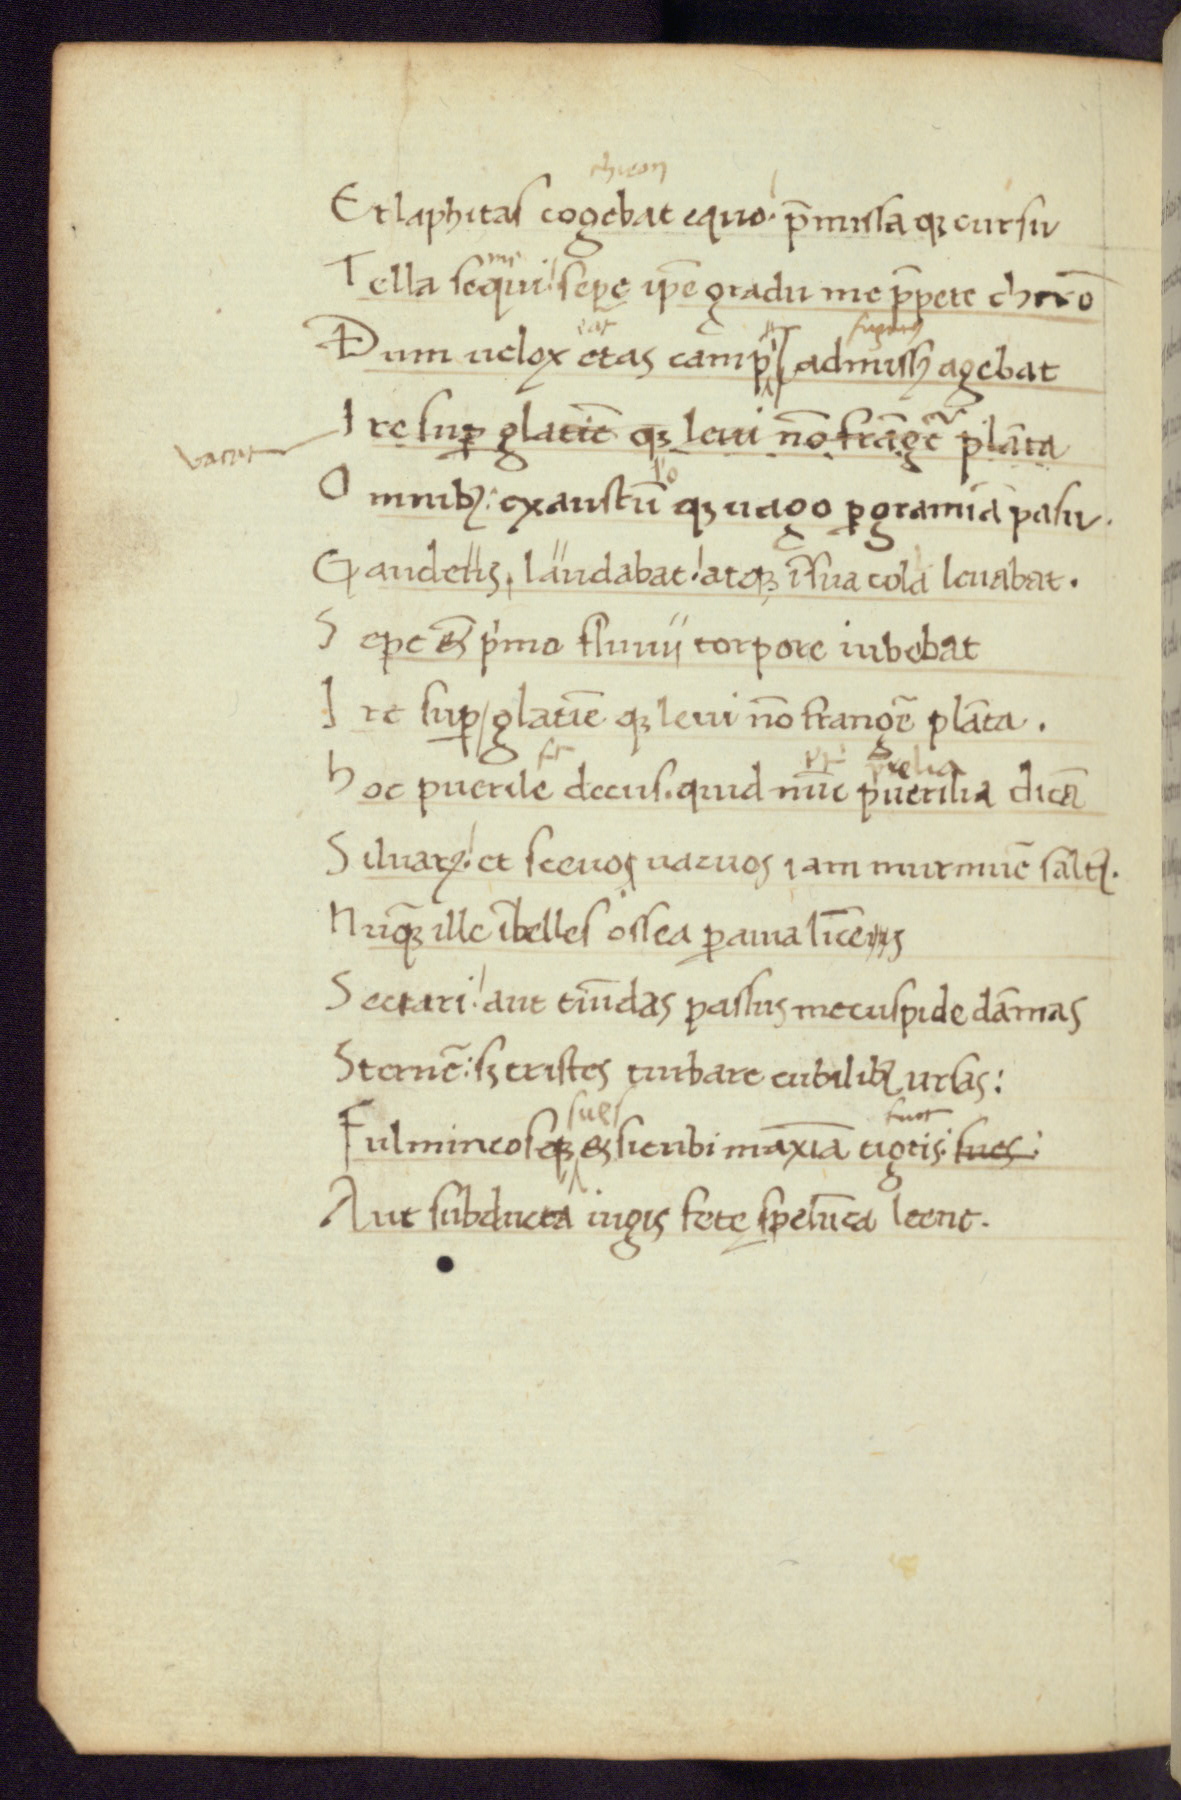 chiron
Et laphitas cogebat equo. p̄missa qꝫ cursu
me
Tella sequi. sepe ip̄e gradu me p̄pete chirō
erat
Dum uelox etas camp admissꝫ agebat
vacat
Ire suꝑ glatiē qꝫ leui nō frāgē plāta
Omnibꝫ: exaustū qꝫ uago ꝑ gramīa pasu.
Gaudens, laudabat. atqꝫ ī sua cola leuabat.
Sepe & p̍mo fluuii torpore iubebat
Ire suꝑ glatiē qꝫ leui nō frangē plāta.
prelia
hoc puerile decus. quid nūc puerilia dicā
Siluarꝝ. et seeuos uacuos iam murmuē saltꝰ.
Nūqꝫ ille ībelles ossea ꝑ auia līcens
Sectari. aut tīudas passus me cuspide dāmas
Sternē: sꝫ tristes turbare cubilibꝫ ursas:
sues
Fulmineosqꝫ & sicubi maxīa tigris. sues.
Aut subducta iugis fete spelūca leene.